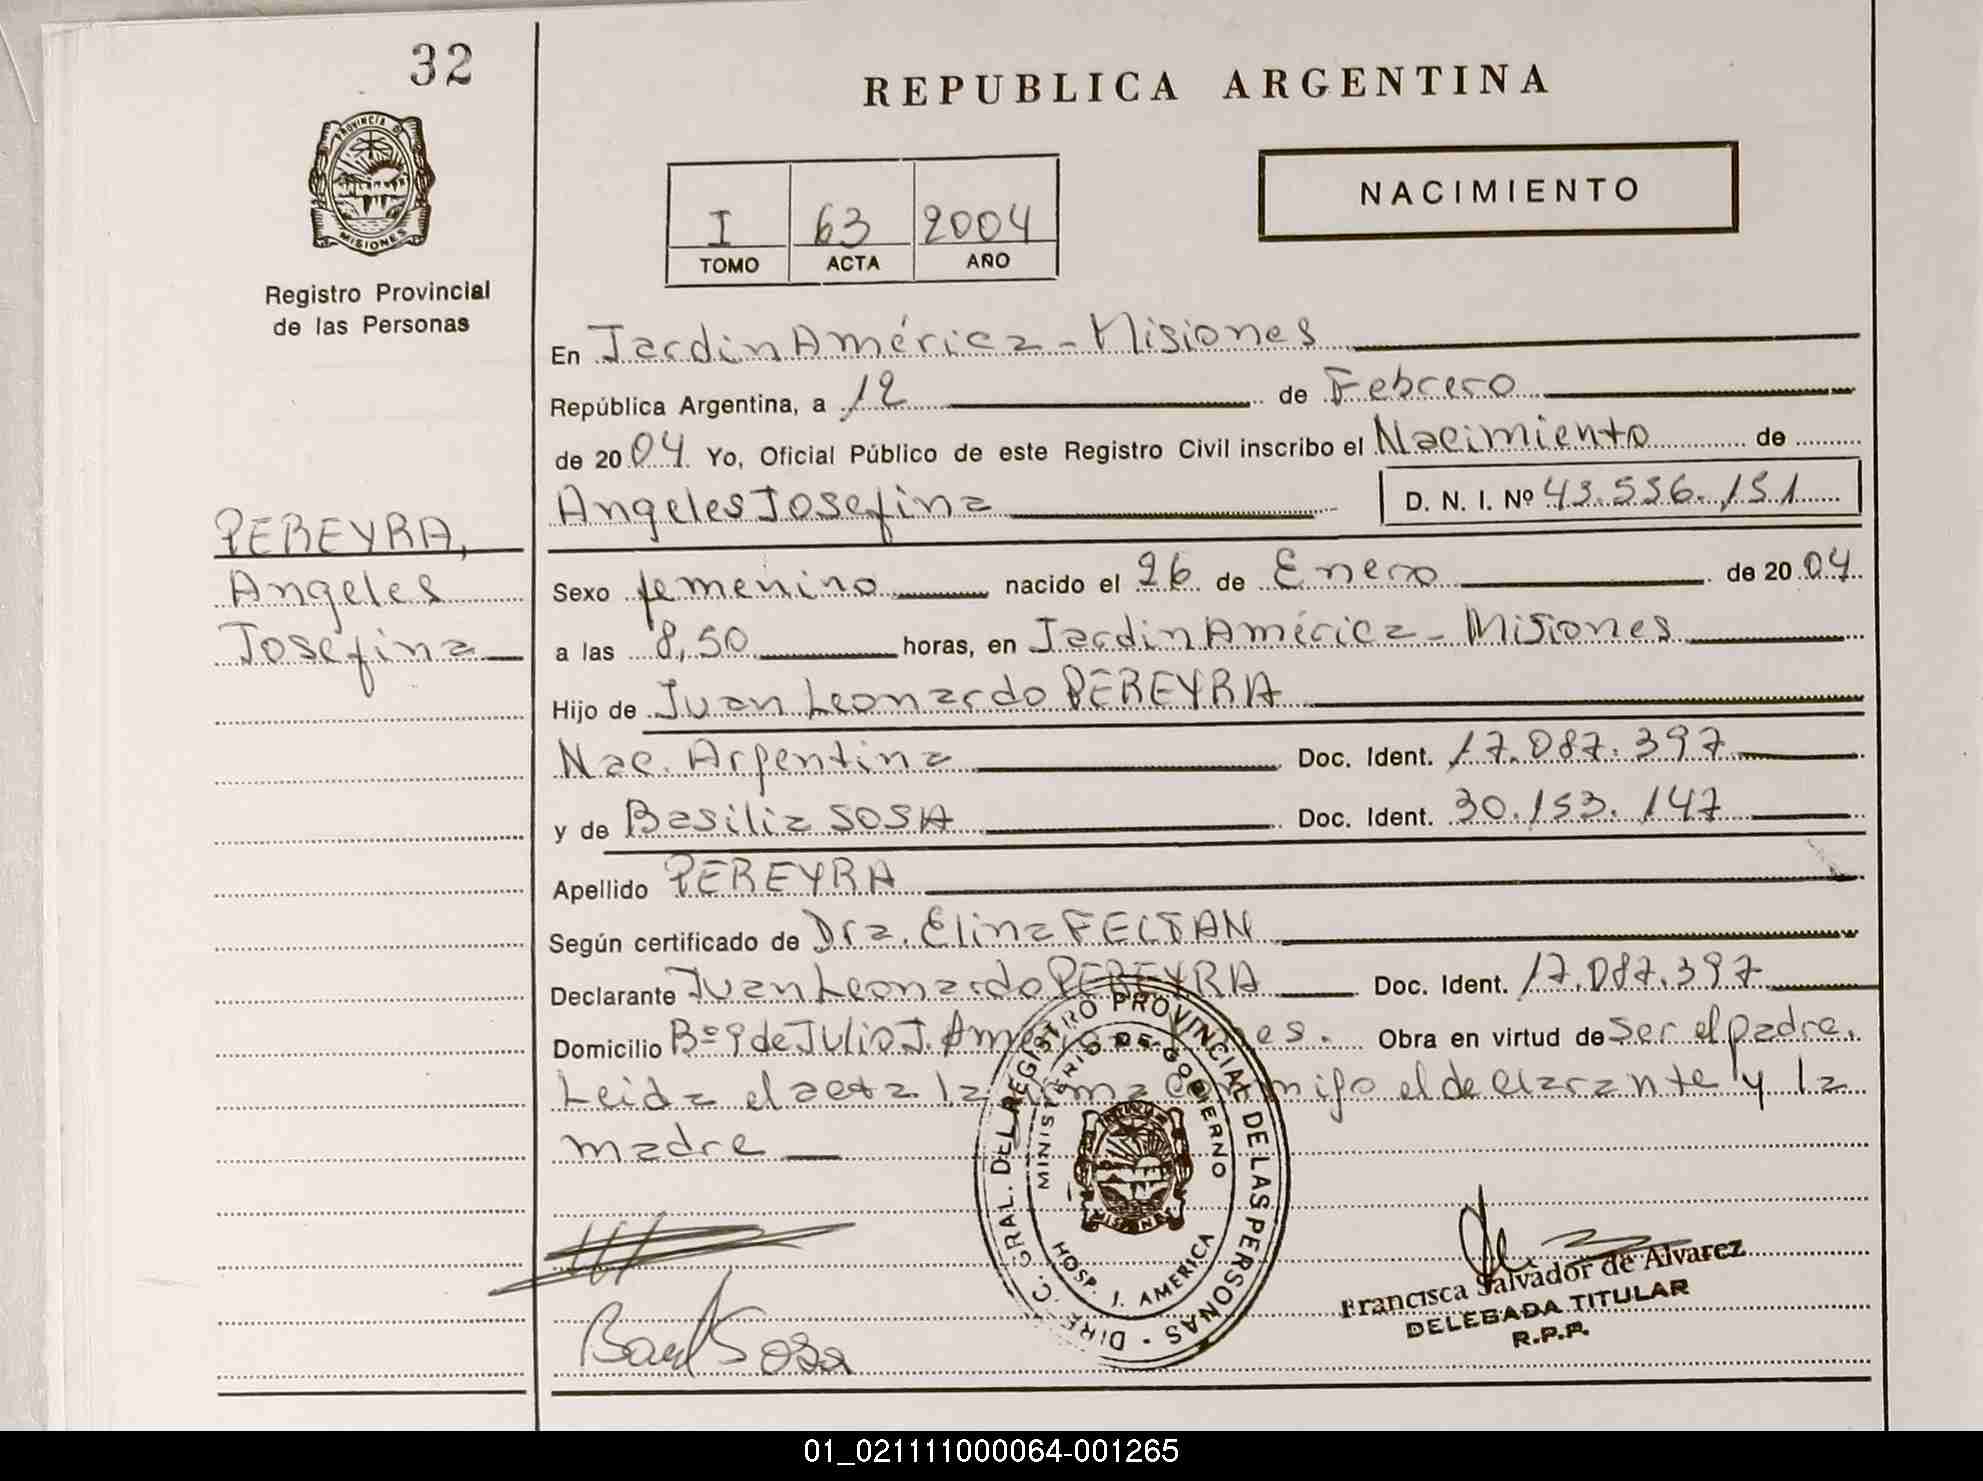 32
REPUBLICA ARGENTINA
PROVINCIA DE
MISIONES
NACIMIENTO
I 63 2004
TOMO ACTA AÑO
Registro Provincial
de las Personas
En Jardin América - Misiones
República Argentina, a 12 de Febrero
de 2004. Yo, Oficial Público de este Registro Civil inscribo el Nacimiento de
Angeles Josefina D. N. I. Nº 43.556.151
PEREYRA,
Angeles
Josefina
Sexo femenino nacido el 26 de Enero de 2004.
a las 8,50 horas, en Jardin América - Misiones
Hijo de Juan Leonardo PEREYRA
Nac. Argentina Doc. Ident. 17.087.397
y de Basilia SOSA Doc. Ident. 30.153.147
Apellido PEREYRA
Según certificado de Dra. Elina
Declarante Juan Leonardo PEREYRA Doc. Ident. 17.087.397
Domicilio Bº 9 de Julio J. Obra en virtud de ser el padre.
Leida el acta la firma conmigo el declarante y la
madre
DIREC. GRAL. DEL REGISTRO PROVINCIAL DE LAS PERSONAS -
MINISTERIO DE GOBIERNO
MISIONES
HOSP. J. AMERICA
Sosa
Francisca Salvador de Alvarez
DELEGADA TITULAR
R.P.P.
01_021111000064-001265